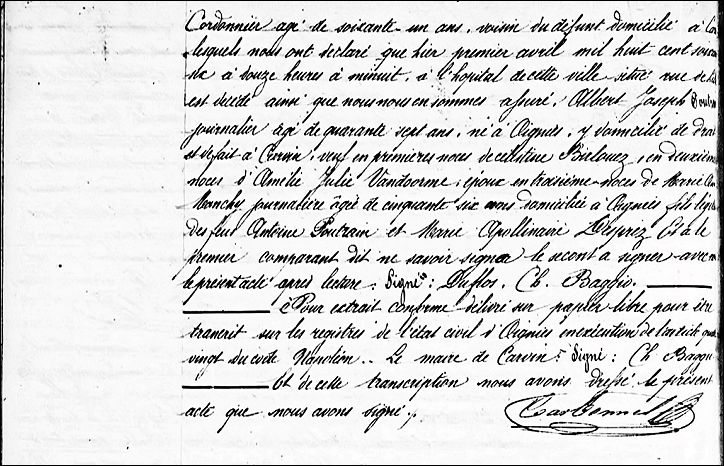 Cordonnier agé de soixante-un ans, voisin du défunt domicilié à
lesquels nous ont déclaré que hier premier avril mil huit cent
dix à douze heures à minuit, à l'hopital de cette ville situé rue de
est décédé ainsi que nous nous en sommes assuré, Albert Joseph
journalier âgé de quarante sept ans, né à Oignies, y domicilié de
et de fait à Carvin, veuf en premières noces de célestine Boulouez, en deuxième
noces d'Amélie Julie Vandoorme; époux en troisième noces de Marie
journalière âgée de cinquante six ans domiciliée à Oignies, fils
des feu Antoine Poutrain et Marie Apollinaire Desprez Et a le
premier comparant dit ne savoir signer le second a signer avec
le présent acte après lecture. Signés: Duflos, Ch. Baggio.
Pour extrait conforme délivré sur papier libre pour être
transcrit sur les registres de l'état civil d'Oignies en exécution de l'article
vingt du code Napoléon.. Le maire de Carvin. Signé: Ch Baggio
Et de cette transcription nous avons dressé le présent
acte que nous avons signé.